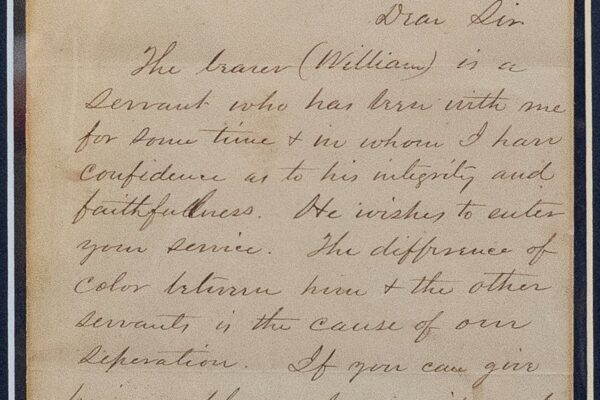 Dear Sir
The bearer (William) is a
servant who has been with me
for some time & in whom I have
confidence as to his integrity and
faithfullness. He wishes to enter
your service. The difference of
color between him & the other
servants is the cause of our
seperation. If you can give